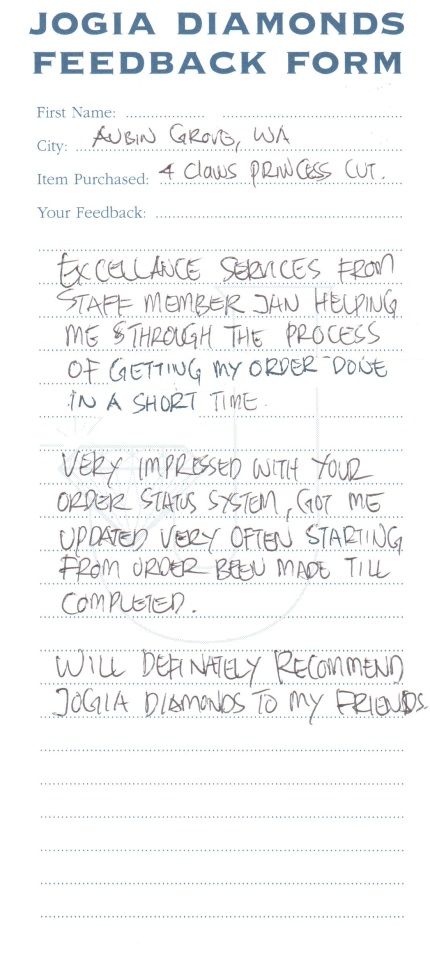 JOGIA DIAMONDS
FEEDBACK FORM
First Name:
City: AUBIN GROVE, WA
Item Purchased: 4 Claws PRINCESS CUT.
Your Feedback:
EXCELLANCE SERVICES FROM
STAFF MEMBER JAN HELPING
ME THROUGH THE PROCESS
OF GETTING MY ORDER DONE
IN A SHORT TIME.
VERY IMPRESSED WITH YOUR
ORDER STATUS SYSTEM, GOT ME
UPDATED VERY OFTEN STARTING
FROM ORDER BEEN MADE TILL
COMPLETED.
WILL DEFINATELY RECOMMEND
JOGIA DIAMONDS TO MY FRIENDS.